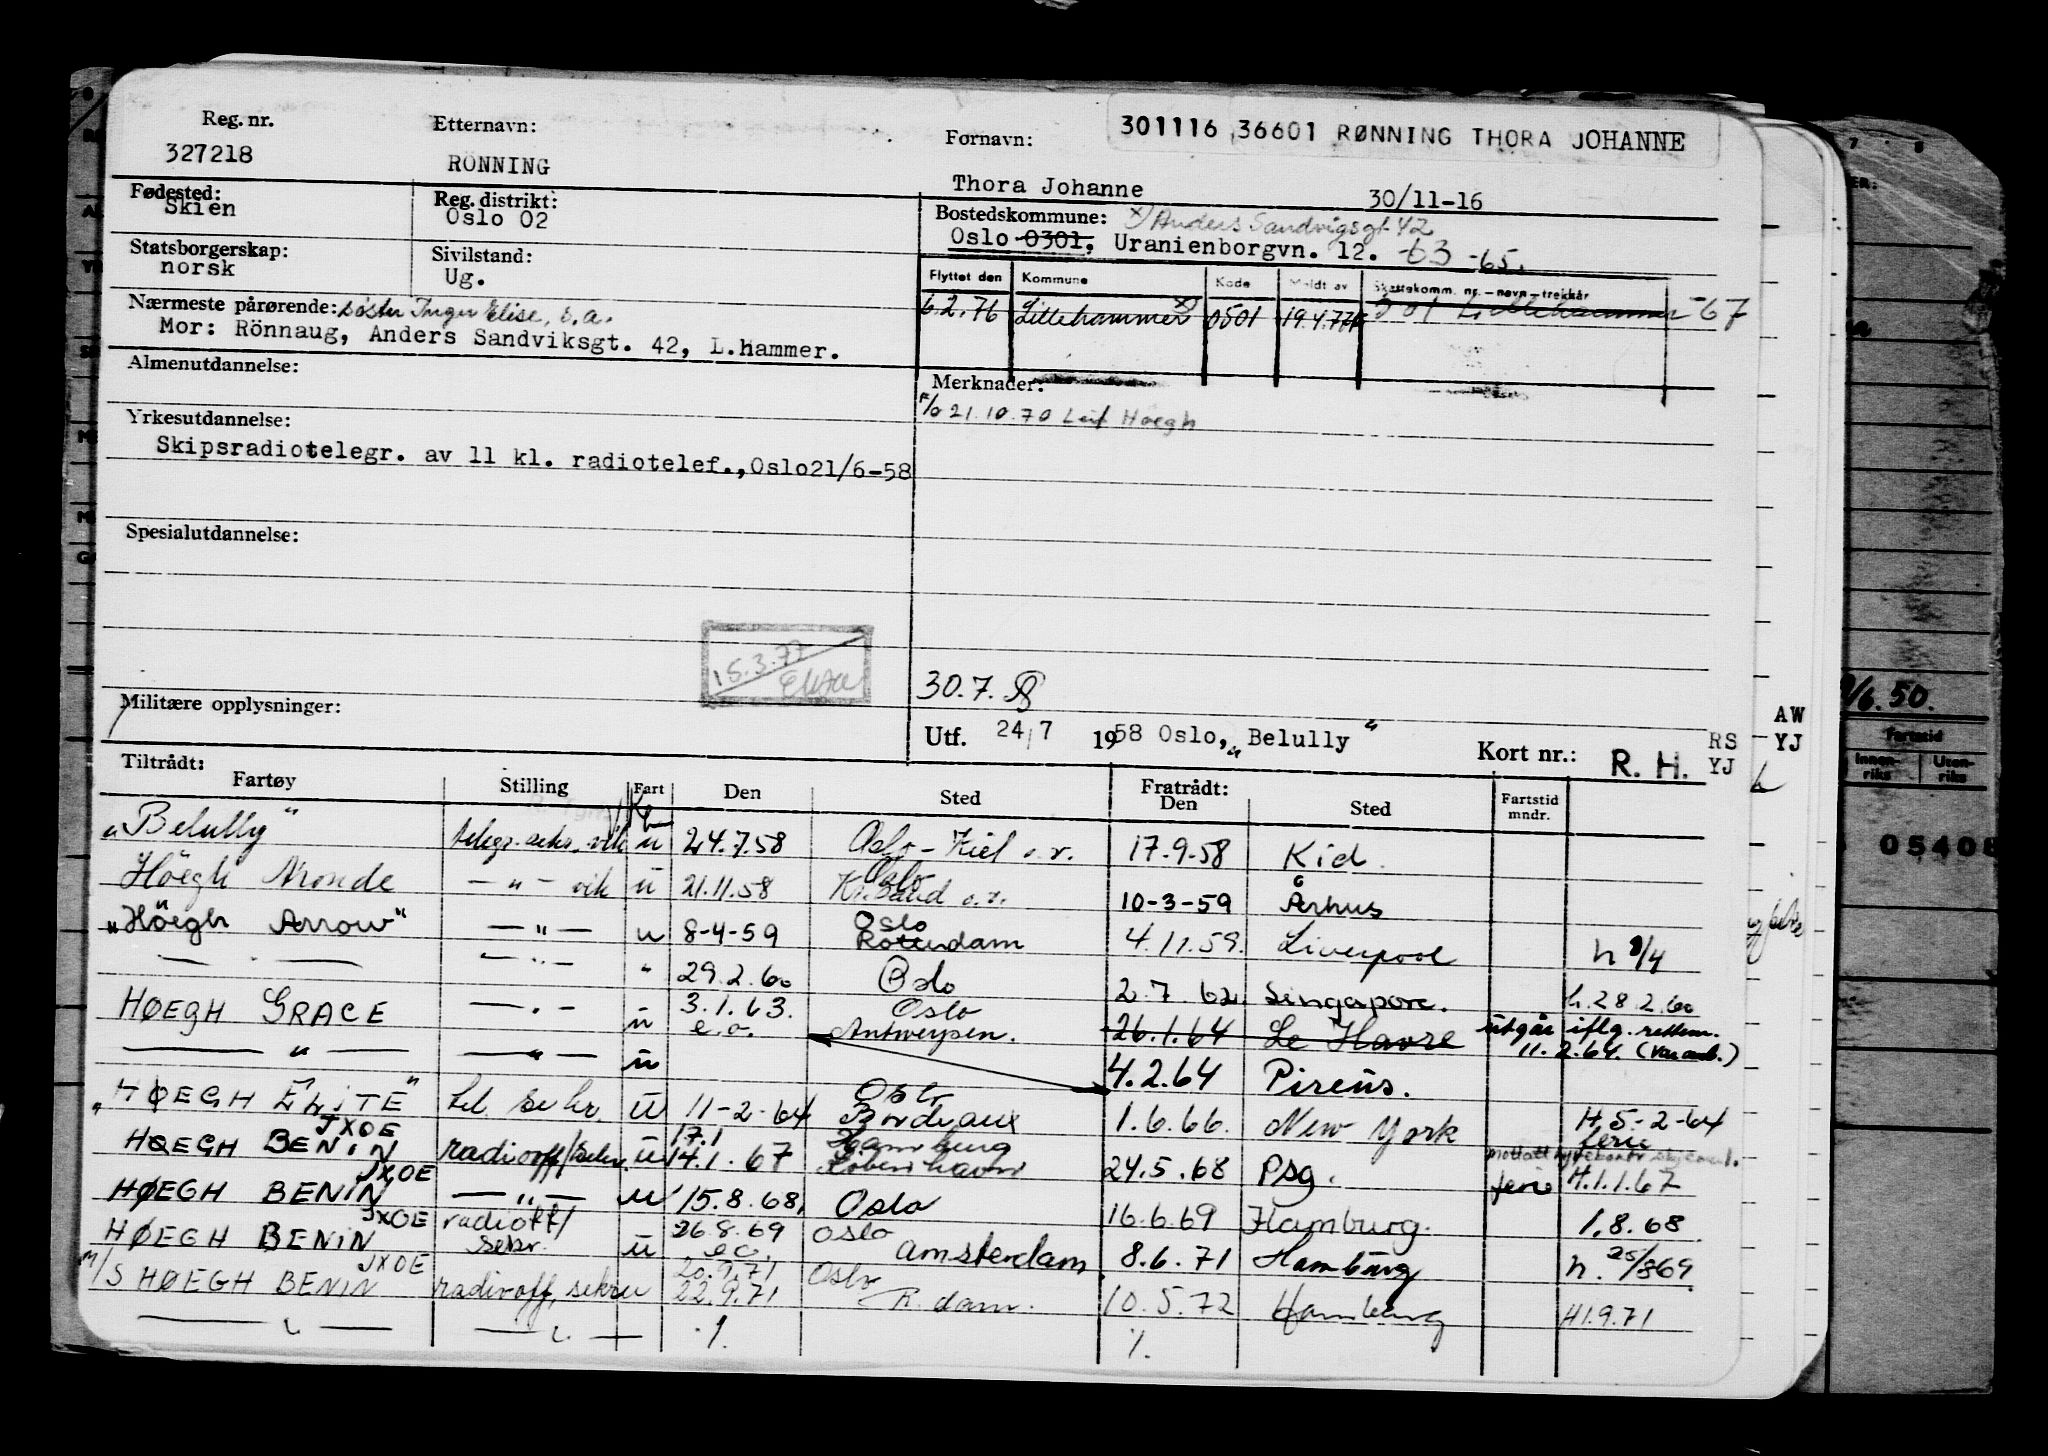 Reg. nr. Etternavn: Fornavn: 301116 36601 RØNNING THORA JOHANNE
327218 RÖNNING Thora Johanne 30/11-16
Fødested: Reg. distrikt: Bostedskommune: x) Anders Sandvigsgt 42
Skien Oslo 02 Oslo 0301, Uranienborgvn. 12. 63 -65.
Statsborgerskap: Sivilstand:
norsk Ug.
Flyttet den Kommune Kode Meldt av Skattekomm. nr. – navn – trekkår
6.2.76 Lillehammer x) 0501 19.4.77 501 Lillehammer -67
Nærmeste pårørende: söster Inger Elise, s.a.
Mor: Rönnaug, Anders Sandviksgt. 42, L.hammer.
Almenutdannelse: Merknader:
F/o 21.10.70 Leif Hoegh
Yrkesutdannelse:
Skipsradiotelegr. av 11 kl. radiotelef.,Oslo21/6-58
Spesialutdannelse:
15.3.77
30.7.
Militære opplysninger:
Utf. 24/7 1958 Oslo, „Belully" Kort nr.: R. H. RS YJ
AW
YJ
Tiltrådt: Fratrådt:
Fartøy Stilling Fart Den Sted Den Sted Fartstid mndr.
„Belully" telegr. sekr. vik u 24.7.58 Oslo - Kiel o.r. 17.9.58 Kiel.
Höegh Aronde — " — vik u 21.11.58 Oslo Kr.sand o.r. 10-3-59 Århus
„Höegh Arrow" — " — u 8-4-59 Oslo Rotterdam 4.11.59. Liverpool h 1/4
— " — — " — " 29.2.60 Oslo 2.7.62. Singapore. h. 28.2.60
HØEGH GRACE — " — u 3.1.63. e.o. Oslo Antwerpen. 26.1.64 Le Havre utgår iflg. rettem. 11.2.64.
— " — — " — u 4.2.64 Pireus.
„HØEGH ELITE" tel sekr. u 11-2-64 Oslo Bordeaux 1.6.66. New York H 5-2-64
HØEGH BENIN JXOE radiooff/sekr. u 17.1 14.1.67 Hamburg Köbenhavn 24.5.68 Psg. ferie H.1.1.67
HØEGH BENIN JXOE — " — u 15.8.68, Oslo 16.6.69 Hamburg. 1.8.68
HØEGH BENIN JXOE radioff/ sekr. u 26.8.69 e.o. Oslo Amsterdam 8.6.71 Hamburg h. 25/869
M/S HØEGH BENIN JXOE radiooff, sekr u 20.9.71 22.9.71 Oslo R.dam. 10.5.72 Hamburg H1.9.71
— " — — " — ./. ./.
/6.50.
Fartstid
Innen-riks Uten-riks
05408